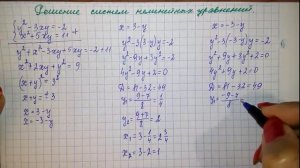 Решение систем нелинейных уравнений.
y² - 3xy = -2
x² + 5xy = 11
y² + x² - 3xy + 5xy = -2 + 11
y² + 2xy + x² = 9
(x+y)² = 3²
x + y = ±3
x = 3 - y
x = -3 - y
x = 3 - y
y² - 3(3-y)y = -2
y² - 9y + 3y² = -2
4y² - 9y + 2 = 0
D = 81 - 32 = 49
y₁ = (9-7)/8 = 1/4
y₂ = (9+7)/8 = 2
x₁ = 3 - 1/4 = 2 3/4
x₂ = 3 - 2 = 1
x = -3 - y
y² - 3(-3-y)y = -2
y² + 9y + 3y² + 2 = 0
4y² + 9y + 2 = 0
D = 81 - 32 = 49
y₁ = (-9-7)/8 =